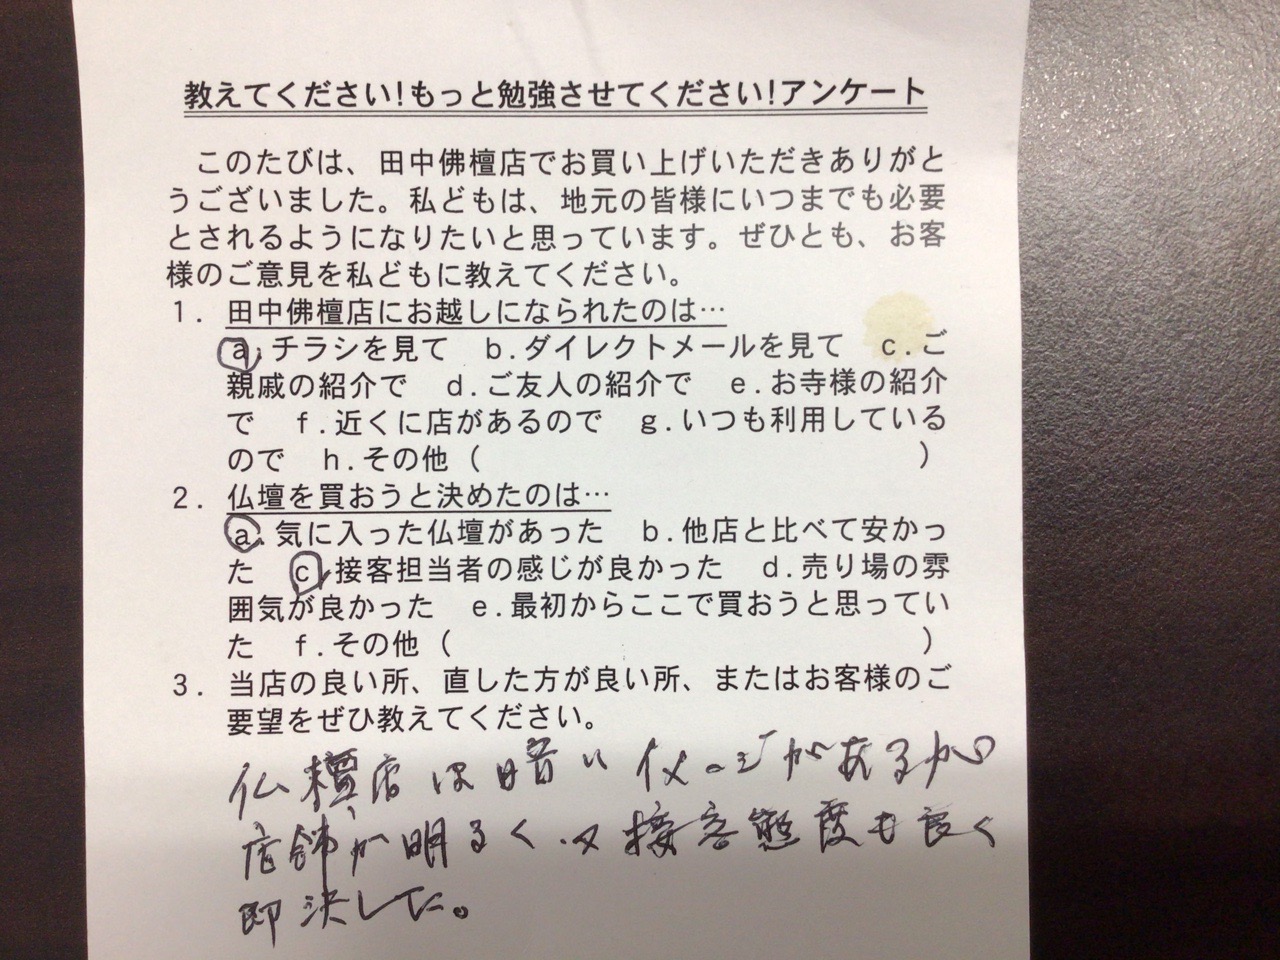 教えてください!もっと勉強させてください!アンケート
このたびは、田中佛檀店でお買い上げいただきありがと
うございました。私どもは、地元の皆様にいつまでも必要
とされるようになりたいと思っています。ぜひとも、お客
様のご意見を私どもに教えてください。
1. 田中佛檀店にお越しになられたのは…
a.チラシを見て b.ダイレクトメールを見て c.ご
親戚の紹介で d.ご友人の紹介で e.お寺様の紹介
で f.近くに店があるので g.いつも利用している
ので h.その他( )
2. 仏壇を買おうと決めたのは…
a.気に入った仏壇があった b.他店と比べて安かっ
た c.接客担当者の感じが良かった d.売り場の雰
囲気が良かった e.最初からここで買おうと思ってい
た f.その他( )
3. 当店の良い所、直した方が良い所、またはお客様のご
要望をぜひ教えてください。
仏檀店は暗いイメージがあるが
店舗が明るく、又接客態度も良く
即決した。